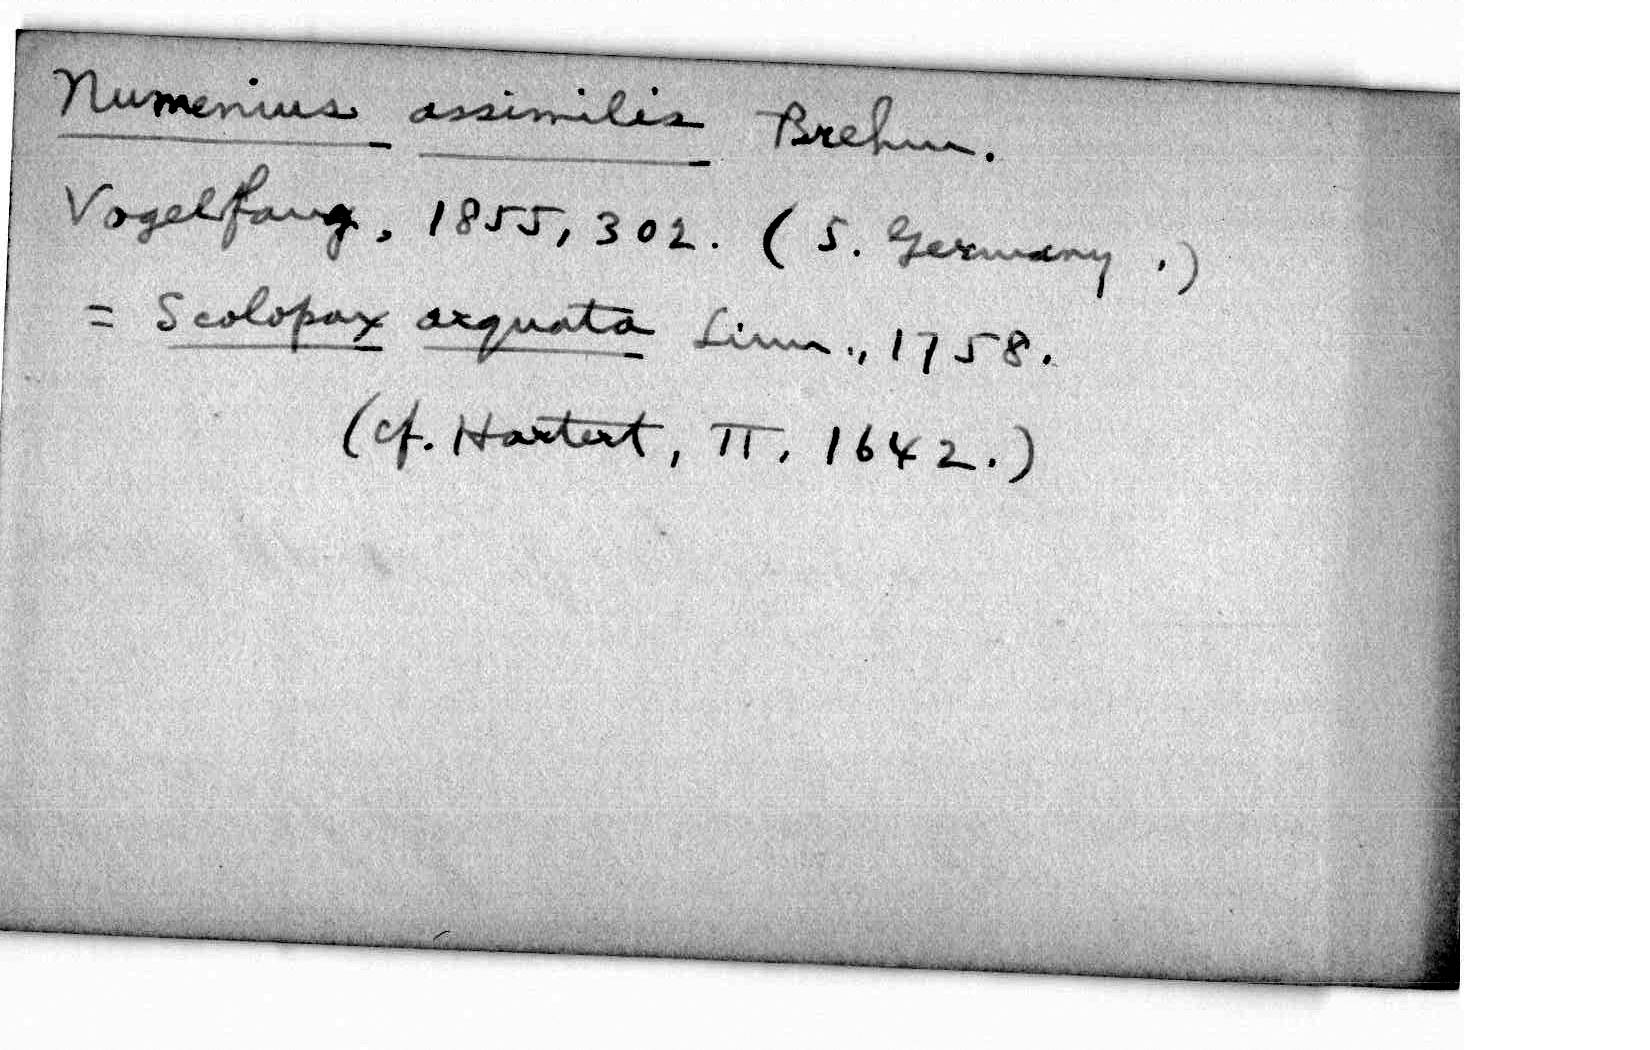 Numenius assimilis Brehm.
Vogelfang, 1855, 302. (S. Germany.)
= Scolopax arquata Linn., 1758.
(cf. Hartert, II, 1642.)